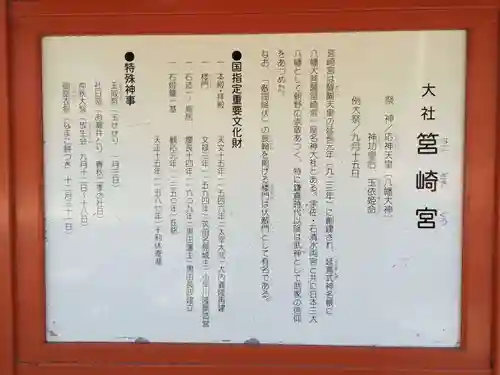 大社 筥崎宮
祭 神／応神天皇（八幡大神）
神功皇后 玉依姫命
例大祭／九月十五日
筥崎宮は醍醐天皇の延長元年（九二三年）に創建され、延喜式神名帳に
八幡大菩薩筥崎宮一座名神大社とある。宇佐・石清水両宮と共に日本三大
八幡として朝野の崇敬あつく、特に鎌倉時代以降は武神として武家の信仰
をあつめた。
なお、「敵国降伏」の扁額を掲げる楼門は伏敵門として有名である。
●国指定重要文化財
一 本殿・拝殿 天文十五年（一五四六年）太宰大弐大内義隆再建
一 楼門 文禄三年（一五九四年）筑前名島城主小早川隆景造営
一 石造一ノ鳥居 慶長十四年（一六〇九年）黒田藩主黒田長政建立
一 石燈籠一基 観応元年（一三五〇年）在銘
天正十五年（一五八七年）千利休寄進
●特殊神事
玉取祭（玉せせり 一月三日）
社日祭（お潮井とり 春秋二季の社日）
仲秋大祭（放生会 九月十二日〜十八日）
御胎衣祭（はまこ餅つき 十二月三十一日）